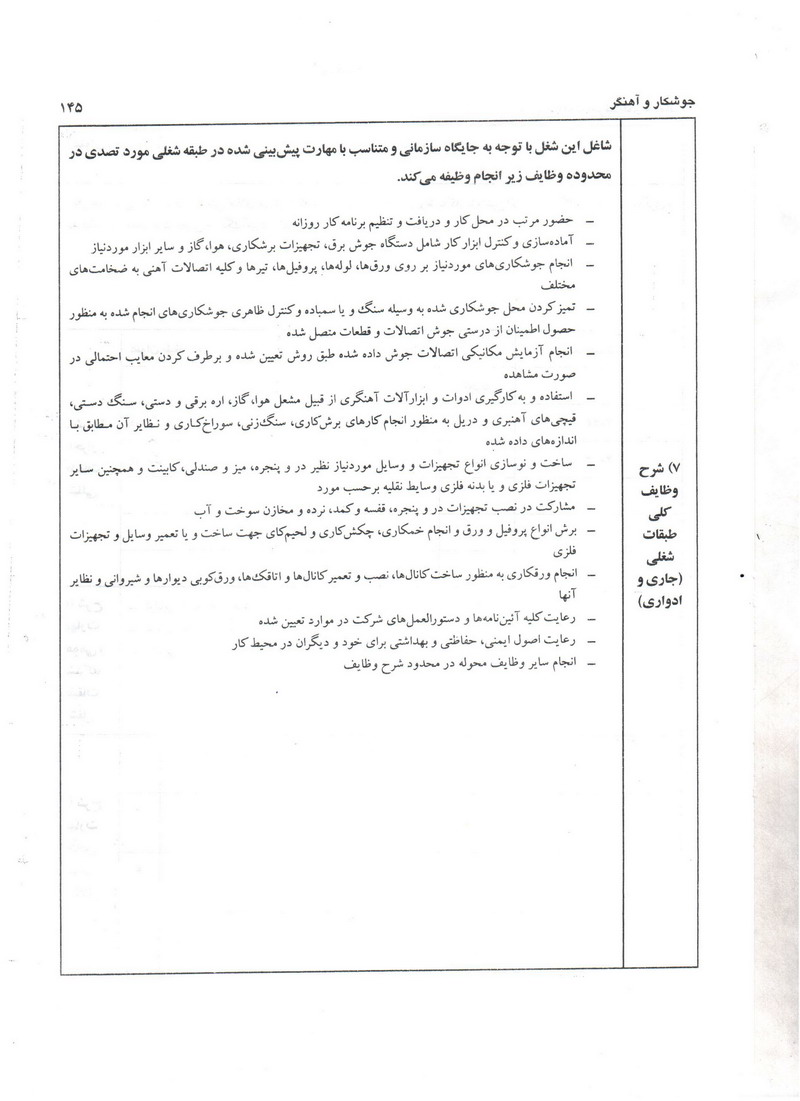 جوشکار و آهنگر
۱۴۵
۷) شرح
وظایف
کلی
طبقات
شغلی
(جاری و
ادواری)
شاغل این شغل با توجه به جایگاه سازمانی و متناسب با مهارت پیش‌بینی شده در طبقه شغلی مورد تصدی در
محدوده وظایف زیر انجام وظیفه می‌کند.
– حضور مرتب در محل کار و دریافت و تنظیم برنامه کار روزانه
– آماده‌سازی و کنترل ابزار کار شامل دستگاه جوش برق، تجهیزات برشکاری، هوا، گاز و سایر ابزار موردنیاز
– انجام جوشکاری‌های موردنیاز بر روی ورق‌ها، لوله‌ها، پروفیل‌ها، تیرها و کلیه اتصالات آهنی به ضخامت‌های
مختلف
– تمیز کردن محل جوشکاری شده به وسیله سنگ و یا سمباده و کنترل ظاهری جوشکاری‌های انجام شده به منظور
حصول اطمینان از درستی جوش اتصالات و قطعات متصل شده
– انجام آزمایش مکانیکی اتصالات جوش داده شده طبق روش تعیین شده و برطرف کردن معایب احتمالی در
صورت مشاهده
– استفاده و به کارگیری ادوات و ابزارآلات آهنگری از قبیل مشعل هوا، گاز، اره برقی و دستی، سنگ دستی،
قیچی‌های آهنبری و دریل به منظور انجام کارهای برش‌کاری، سنگ‌زنی، سوراخ‌کاری و نظایر آن مطابق با
اندازه‌های داده شده
– ساخت و نوسازی انواع تجهیزات و وسایل موردنیاز نظیر در و پنجره، میز و صندلی، کابینت و همچنین سایر
تجهیزات فلزی و یا بدنه فلزی وسایط نقلیه برحسب مورد
– مشارکت در نصب تجهیزات در و پنجره، قفسه و کمد، نرده و مخازن سوخت و آب
– برش انواع پروفیل و ورق و انجام خمکاری، چکش‌کاری و لحیم‌کای جهت ساخت و یا تعمیر وسایل و تجهیزات
فلزی
– انجام ورقکاری به منظور ساخت کانال‌ها، نصب و تعمیر کانال‌ها و اتاقک‌ها، ورق‌کوبی دیوارها و شیروانی و نظایر
آنها
– رعایت کلیه آئین‌نامه‌ها و دستورالعمل‌های شرکت در موارد تعیین شده
– رعایت اصول ایمنی، حفاظتی و بهداشتی برای خود و دیگران در محیط کار
– انجام سایر وظایف محوله در محدود شرح وظایف